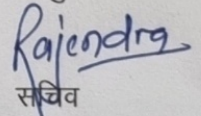 Rajendra
सचिव